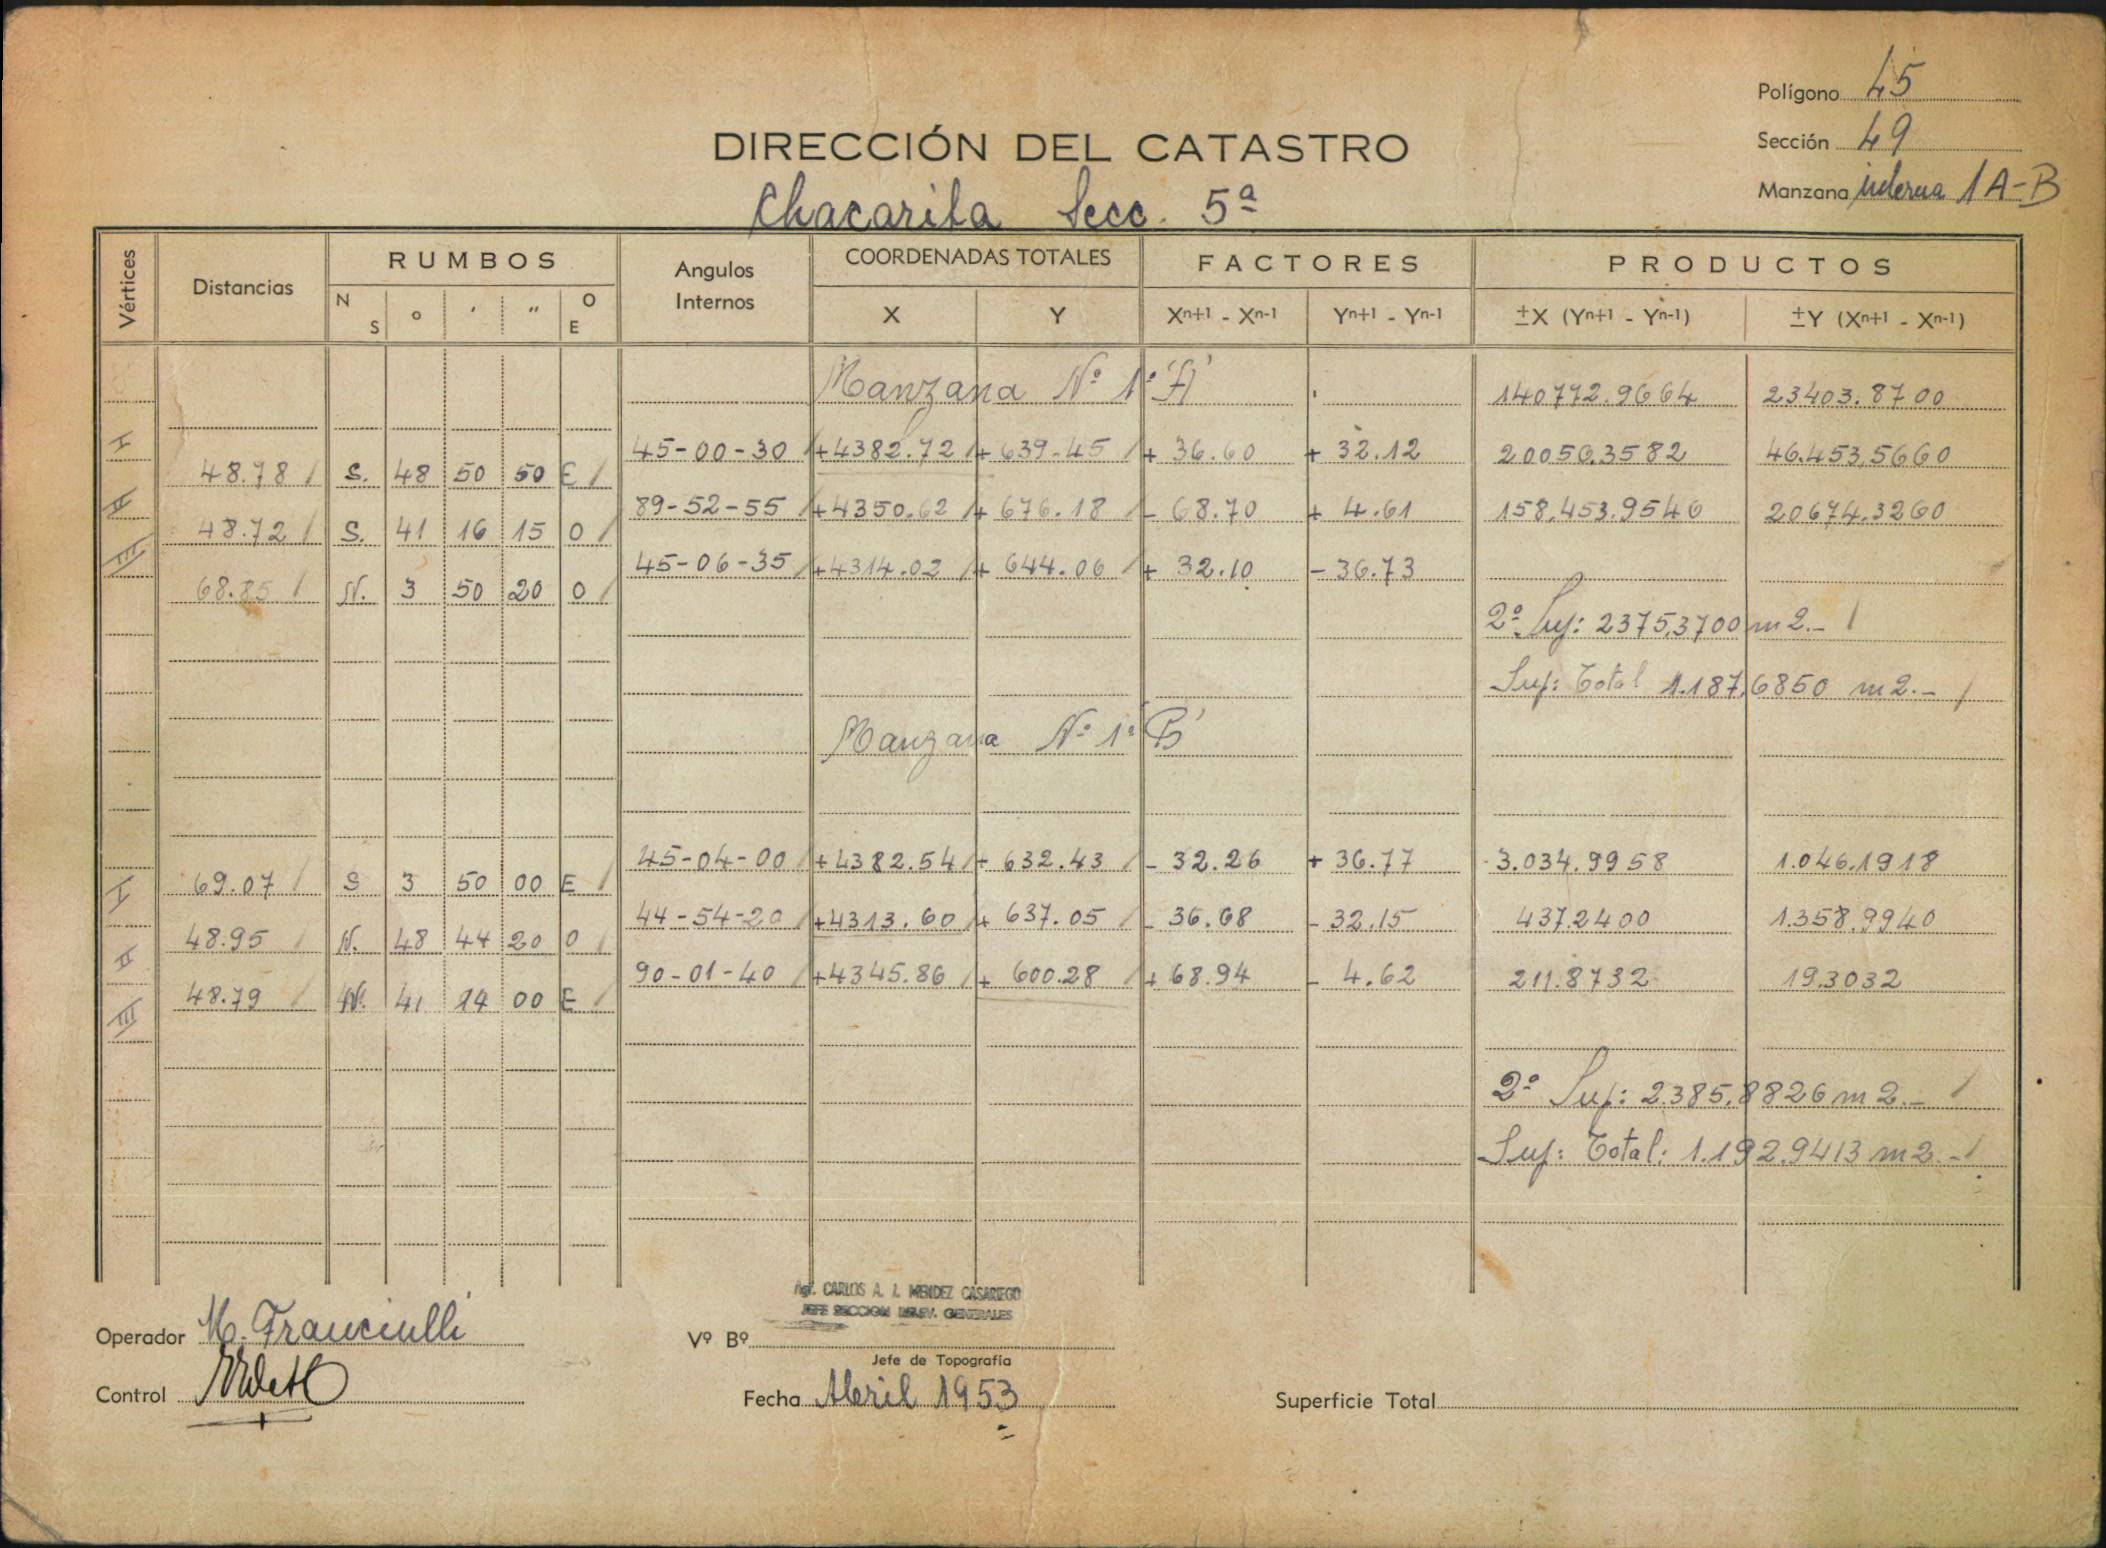 Polígono 45
Sección 49
Manzana interna 1A-B
DIRECCIÓN DEL CATASTRO
Chacarita Secc. 5ª
Vértices Distancias RUMBOS Angulos Internos COORDENADAS TOTALES FACTORES PRODUCTOS
N S ° ' " O E X Y Xn+1 - Xn-1 Yn+1 - Yn-1 ±X (Yn+1 - Yn-1) ±Y (Xn+1 - Xn-1)
Manzana Nº 1ª 'A' 140772.9664 23403.8700
I 45-00-30 +4382.72 + 639.45 + 36.60 + 32.12 20056.3582 46.453.5660
48.78 S. 48 50 50 E
II 89-52-55 +4350.62 + 676.18 - 68.70 + 4.61 158.453.9546 20674.3260
48.72 S. 41 16 15 O
III 45-06-35 +4314.02 + 644.06 + 32.10 - 36.73
68.85 N. 3 50 20 O
2ª Sup: 2375,3700 m2.-
Sup: Total 1.187,6850 m2.-
Manzana Nº 1ª 'B'
45-04-00 +4382.54 + 632.43 - 32.26 + 36.77 3.034.9958 1.046.1918
I 69.07 S 3 50 00 E
44-54-20 +4313.60 + 637.05 - 36.68 - 32.15 437.2400 1.358.9940
II 48.95 N. 48 44 20 O
90-01-40 +4345.86 + 600.28 + 68.94 - 4.62 211.8732 19.3032
III 48.79 N. 41 14 00 E
2ª Sup: 2.385,8826 m2.-
Sup: Total: 1.192.9413 m2.-
Agr. CARLOS A. J. MENDEZ CASARIEGO
JEFE SECCION RELEV. GENERALES
Operador M. Franciulli
Vº Bº
Jefe de Topografía
Control
Fecha Abril 1953
Superficie Total